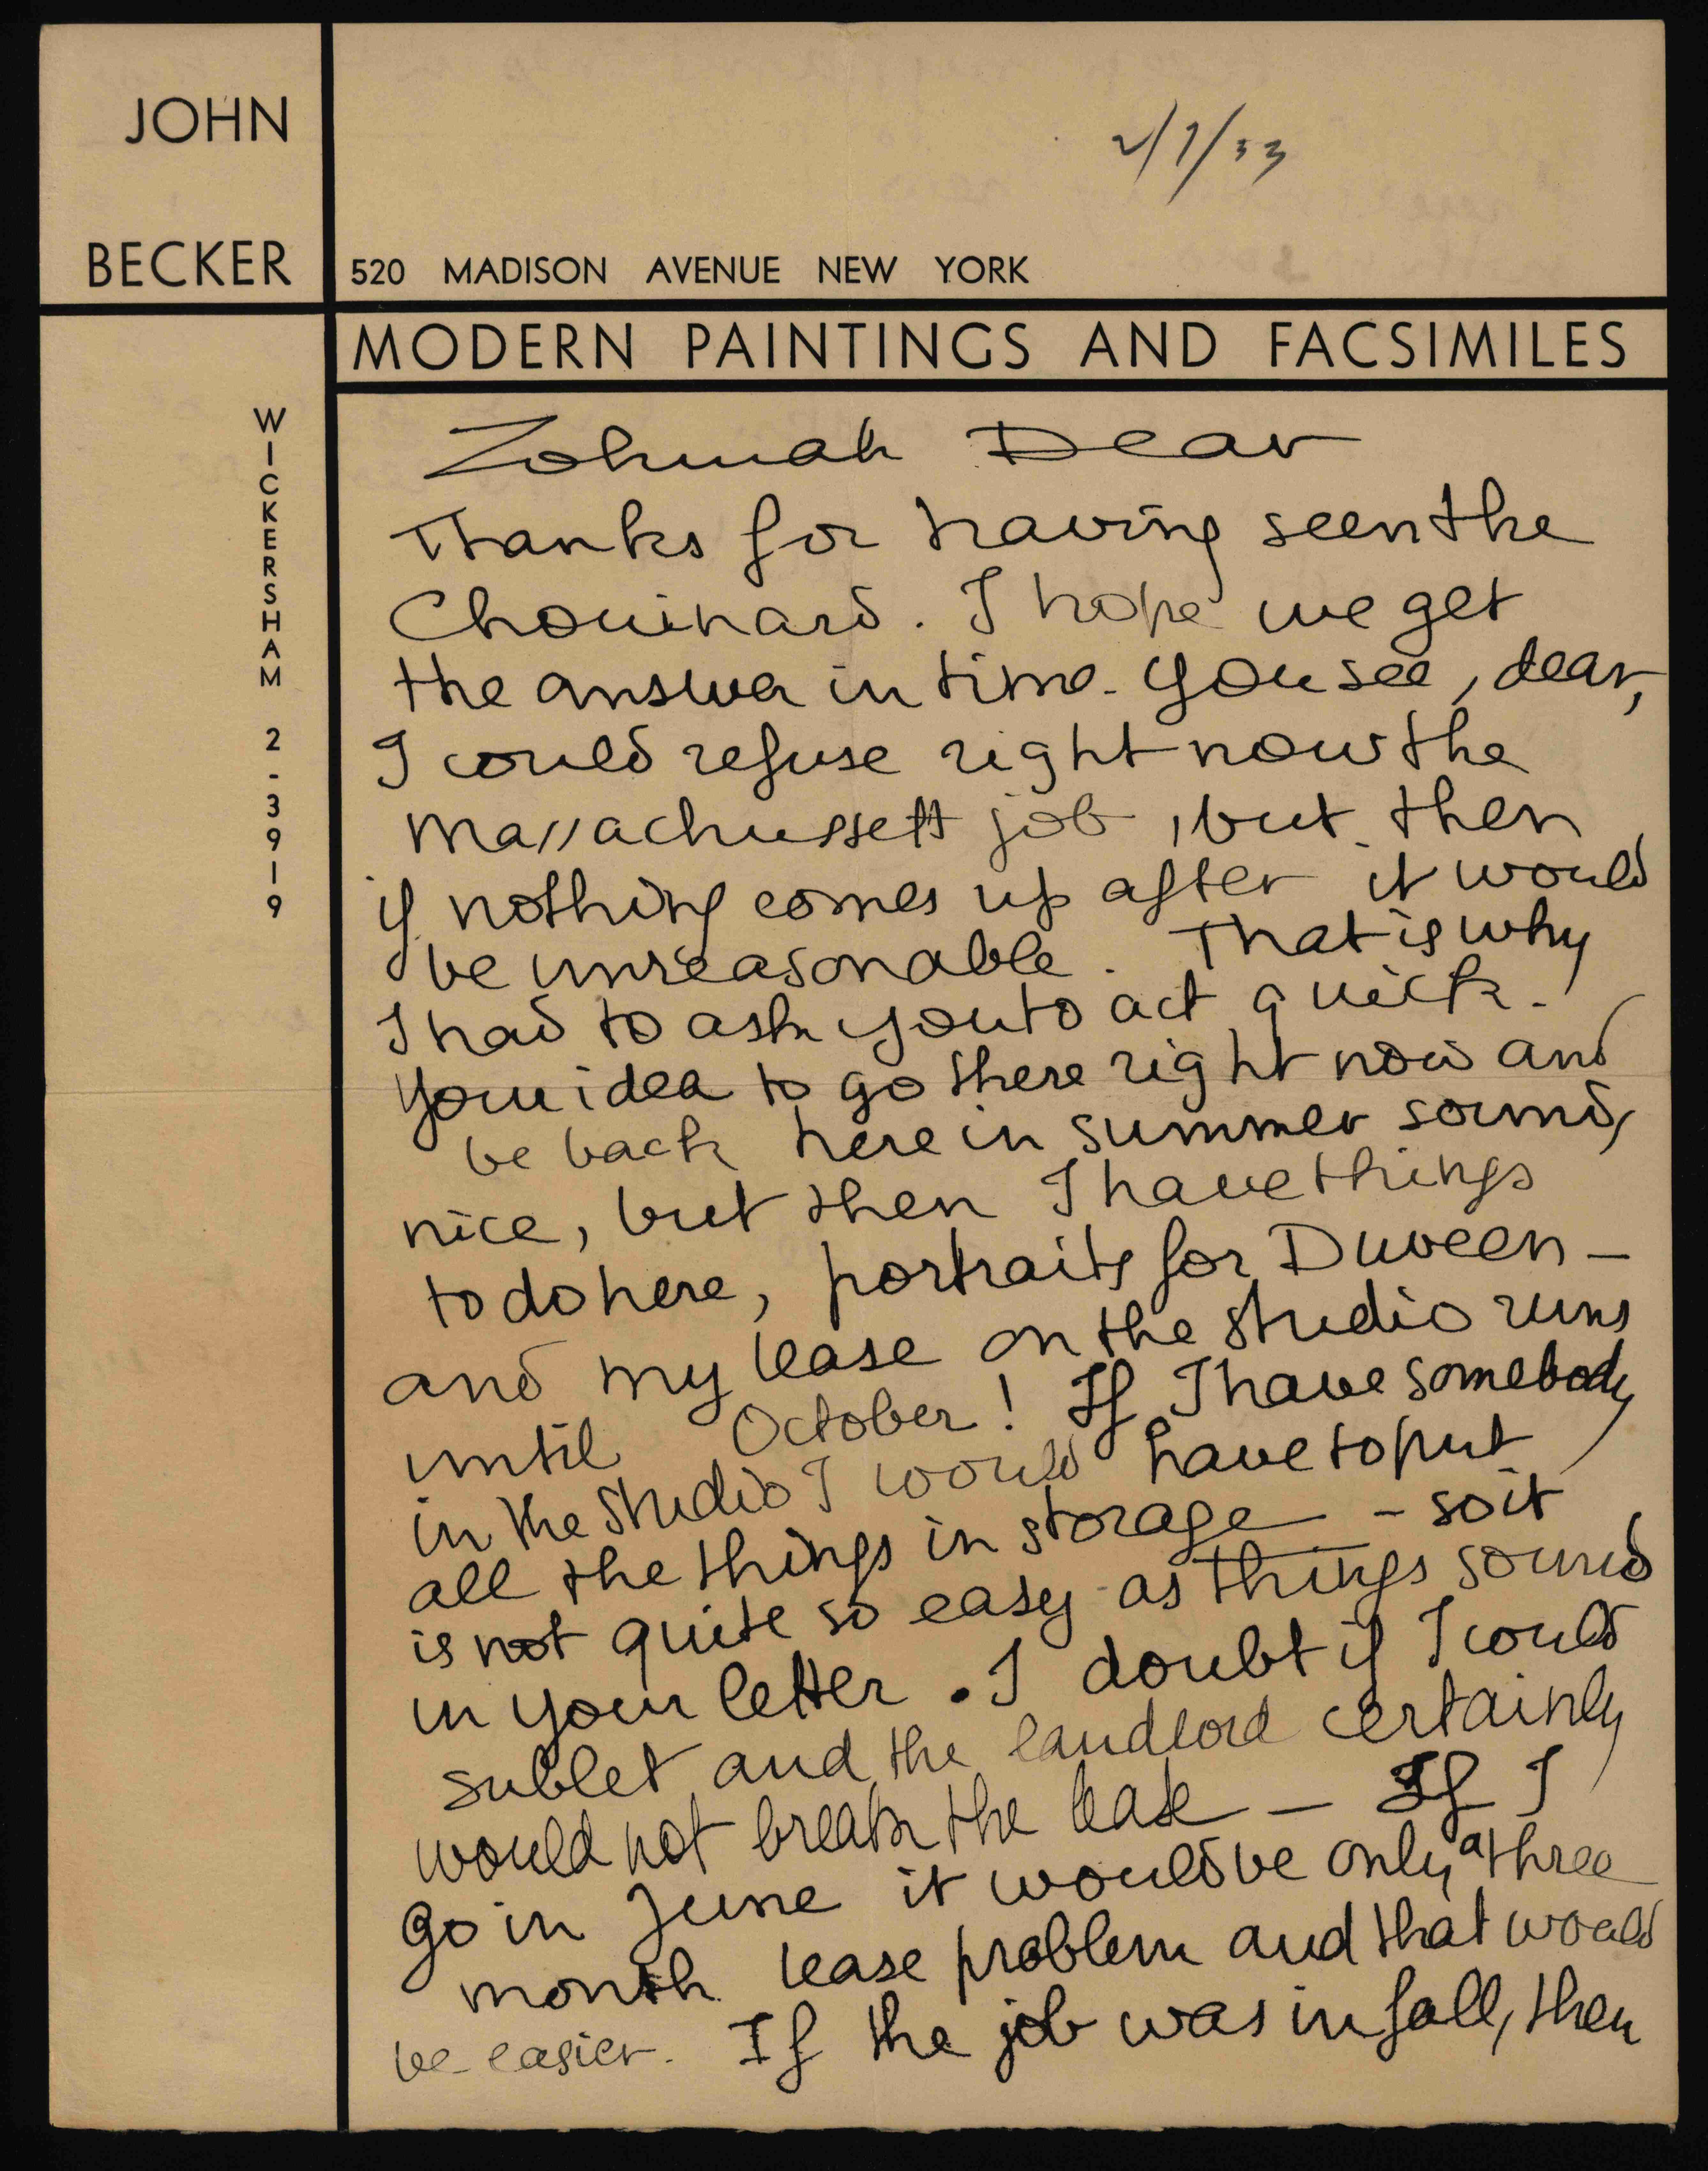 JOHN
BECKER
2/7/33
520 MADISON AVENUE NEW YORK
MODERN PAINTINGS AND FACSIMILES
WICKERSHAM 2-3919
Zohmah Dear
Thanks for having seen the
Chouinard. I hope we get
the answer in time. You see, dear,
I could refuse right now the
Massachussett job, but then
if nothing comes up after it would
be unreasonable. That is why
I had to ask you to act quick.
Your idea to go there right now and
be back here in summer sounds
nice, but then I have things
to do here, portraits for Duveen -
and my lease on the studio runs
until October! If I have somebody
in the studio I would have to put
all the things in storage - so it
is not quite so easy as things sound
in your letter. I doubt if I could
sublet and the landlord certainly
would not break the lease - If I
go in June it would be only a three
month lease problem and that would
be easier. If the job was in fall, then